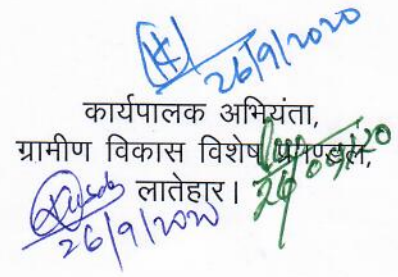 26/9/2020
कार्यपालक अभियंता,
ग्रामीण विकास विशेष प्रमण्डल,
लातेहार।
26/9/2020